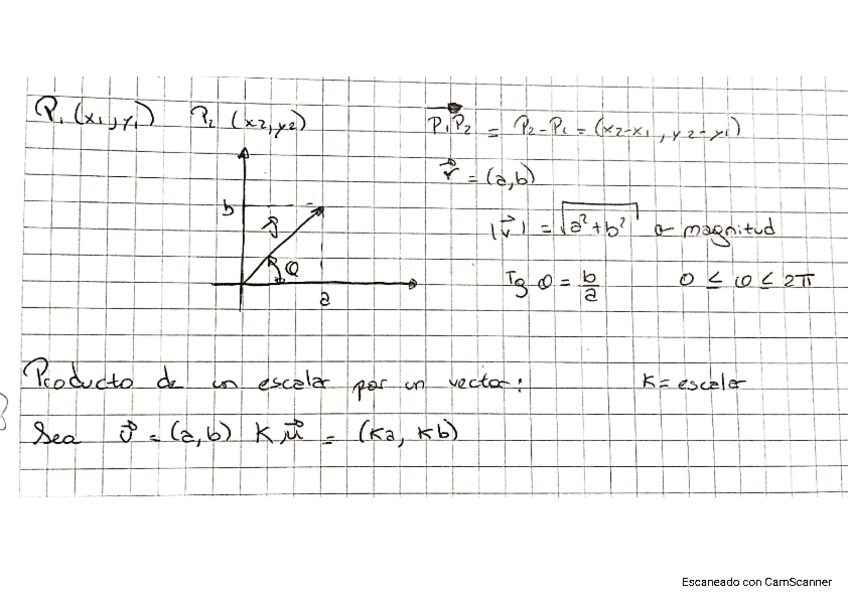 P₁ (x₁, y₁) P₂ (x₂, y₂)
P₁P₂ = P₂ - P₁ = (x₂-x₁, y₂-y₁)
v⃗ = (a, b)
b
v⃗
θ
a
|v⃗| = √(a² + b²) o magnitud
Tg θ = b/a 0 ≤ θ ≤ 2π
Producto de un escalar por un vector: K = escalar
Sea v⃗ = (a, b) K u⃗ = (Ka, Kb)
Escaneado con CamScanner